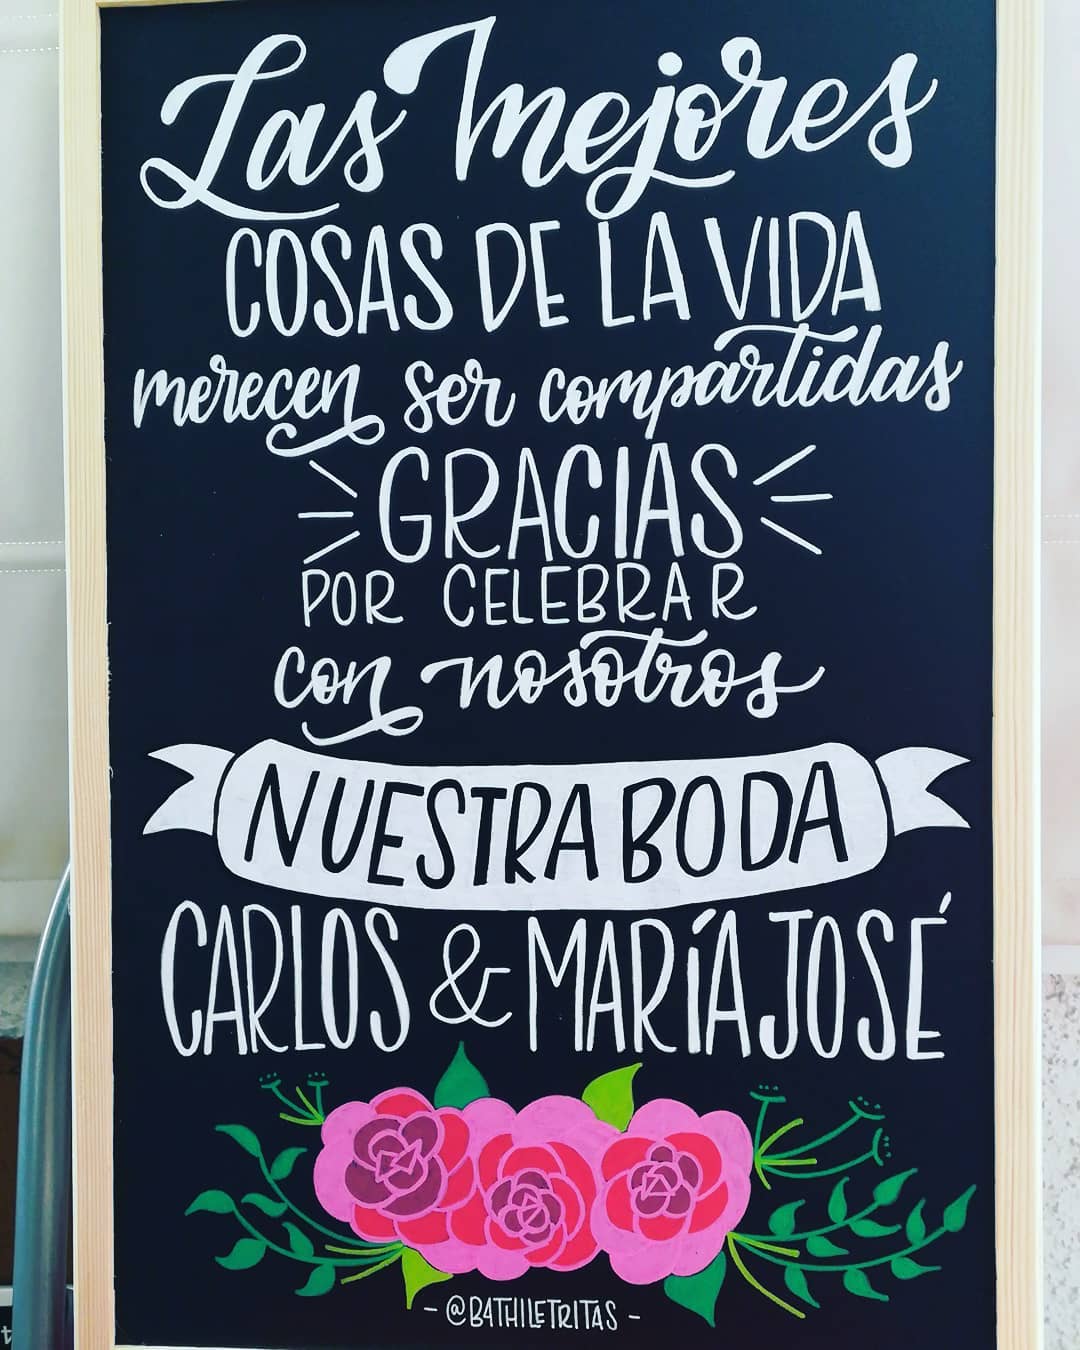 Las Mejores
COSAS DE LA VIDA
merecen ser compartidas
GRACIAS
POR CELEBRAR
con nosotros
NUESTRA BODA
CARLOS & MARÍA JOSÉ
- @BATHILETRITAS -